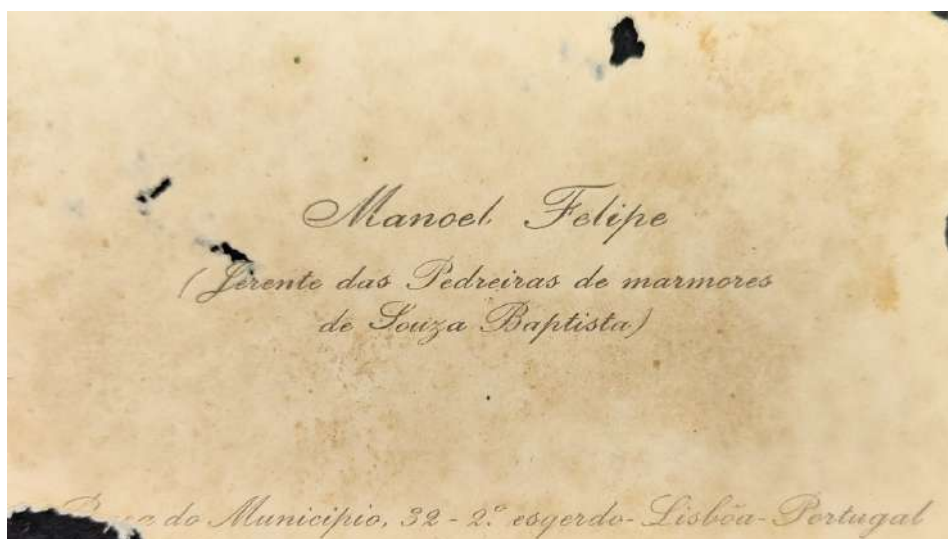 Manoel Felipe
(Jerente das Pedreiras de marmores
de Souza Baptista)
do Municipio, 32 - 2º esqerdo - Lisbôa - Portugal